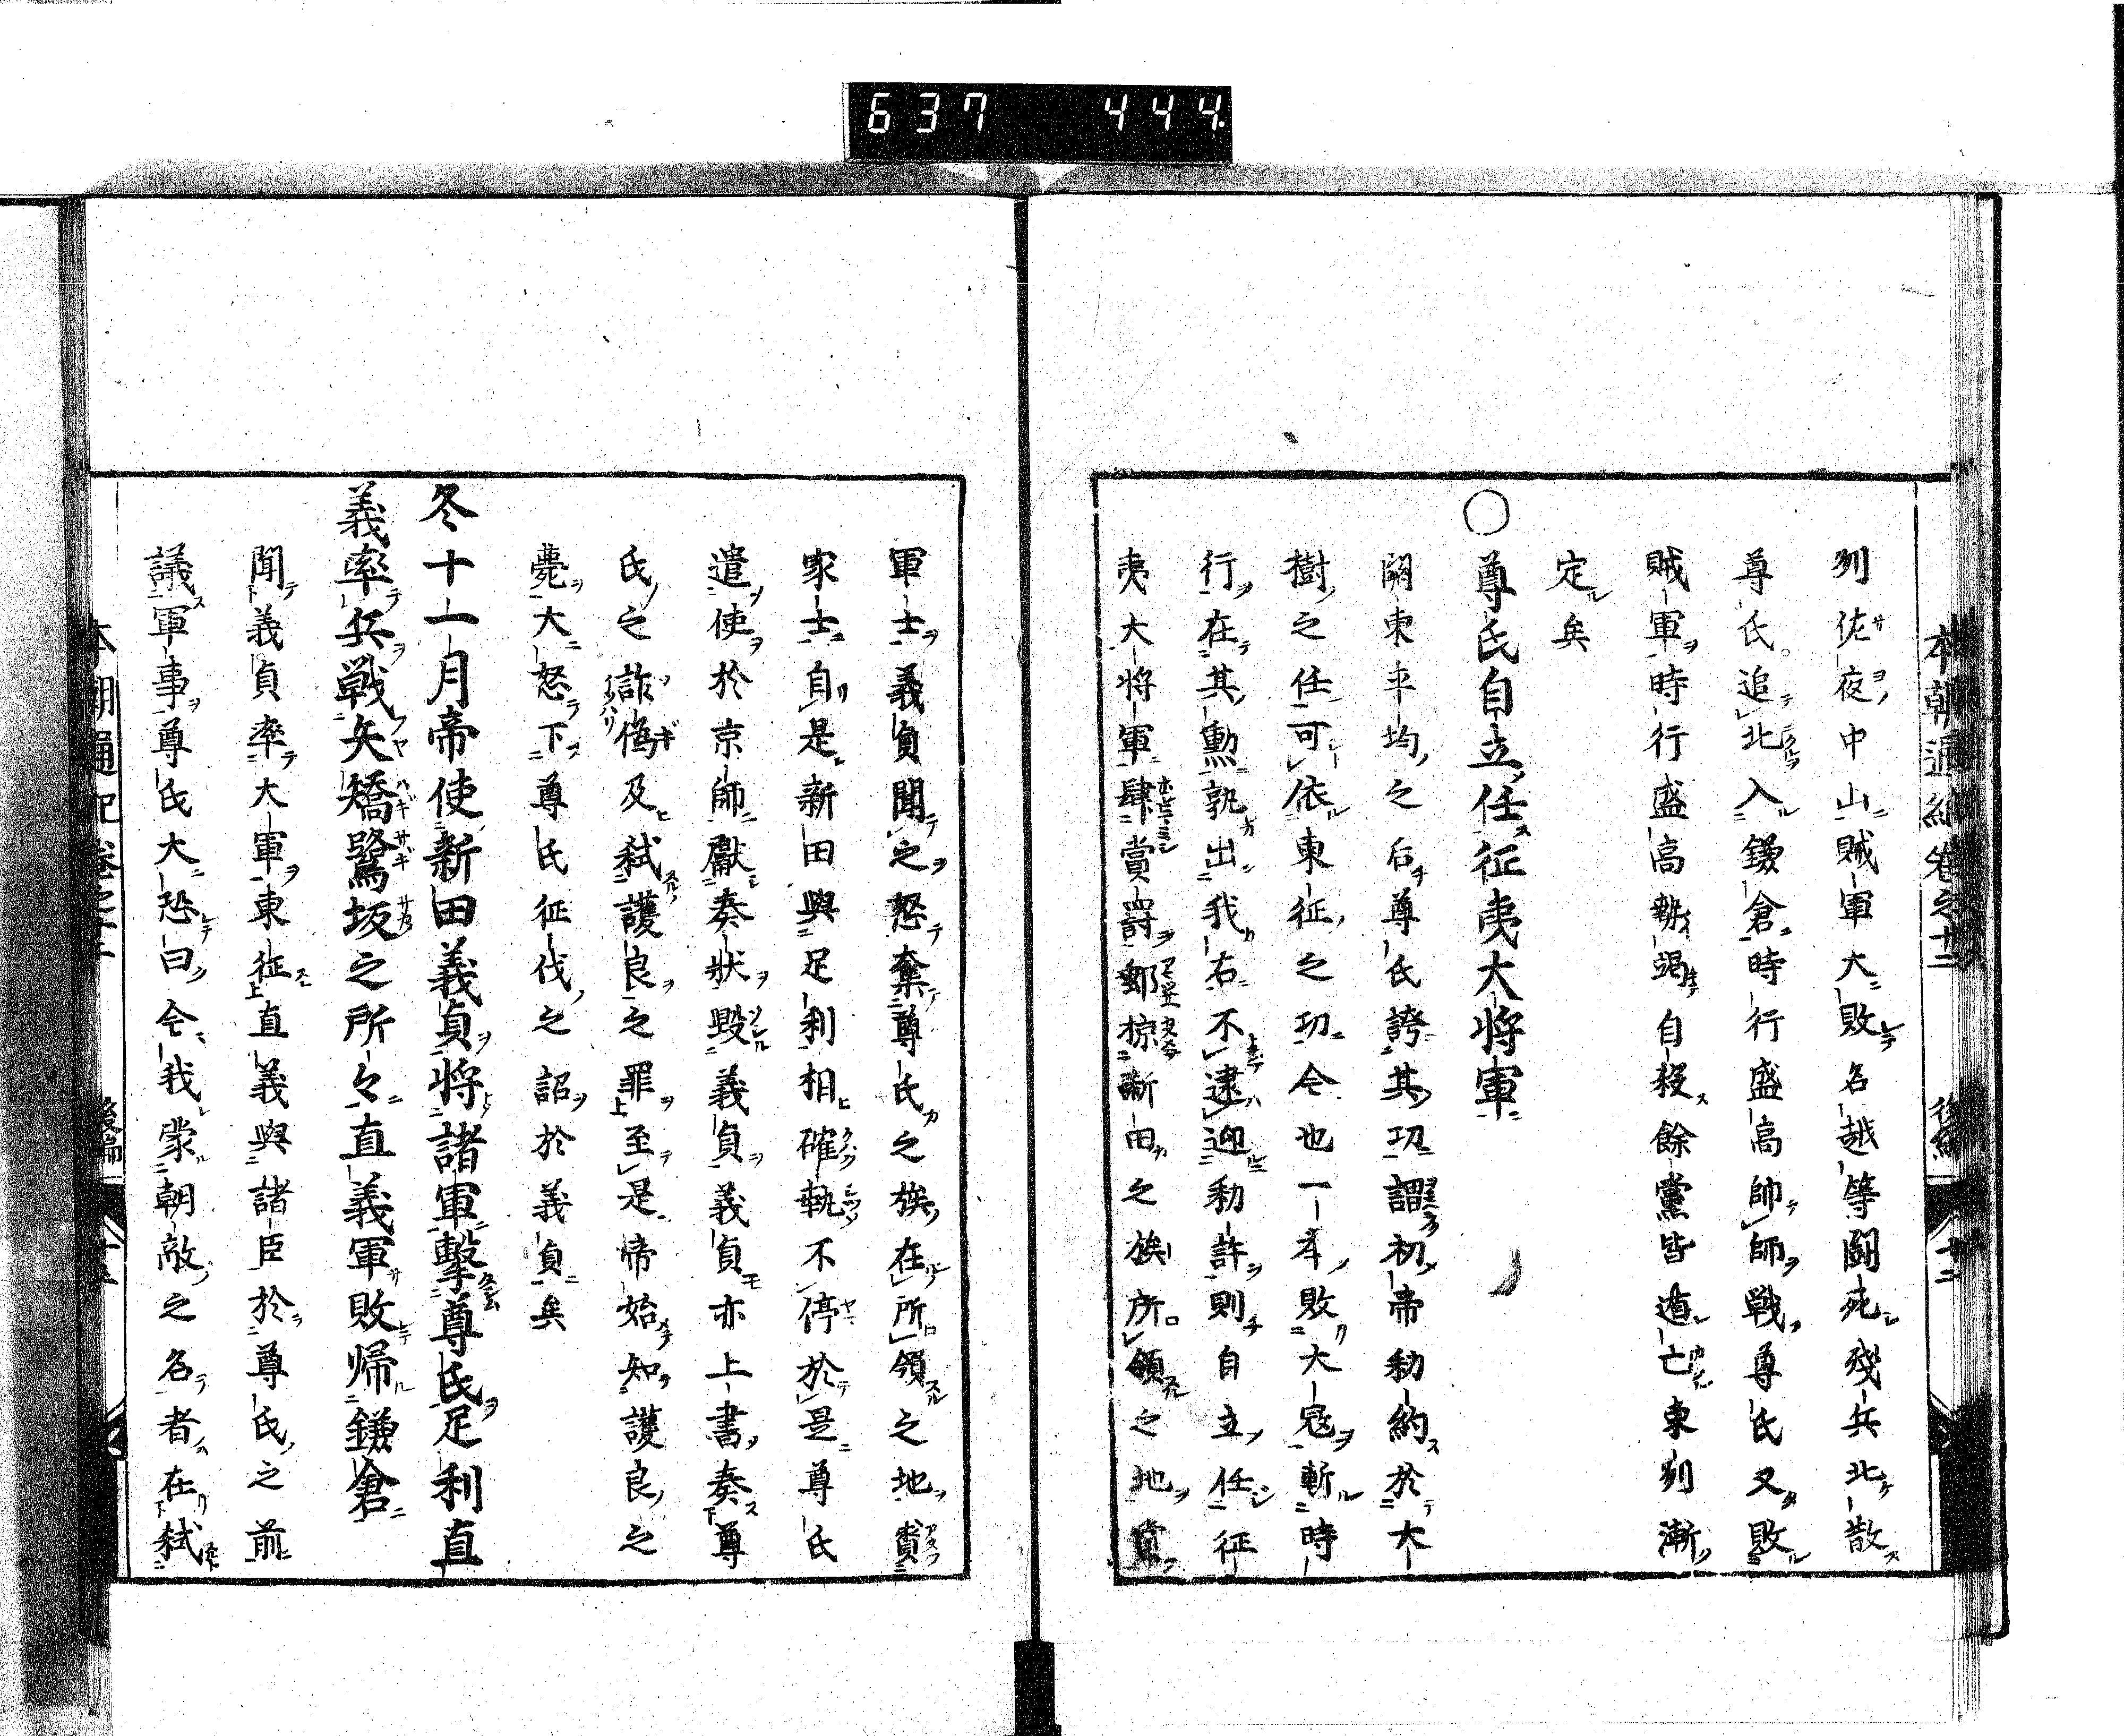 637 444.
本朝通紀卷之十二 後編 十二
列佐夜中山賊軍大敗名越等鬪死殘兵北散
尊氏追北入鎌倉時行盛高帥師戰尊氏又敗
賊軍時行盛高勢竭自殺餘黨皆遁亡東列漸
定矣
○尊氏自立任征夷大将軍
關東平均之后尊氏誇其功謂初帝勅約於大
樹之任可依東征之功今也一本敗大寇斬時
行在其勲孰出我右不逮迎勅許則自立任征
夷大将軍肆賞爵鄉掠新田之族所領之地賞
軍士義貞聞之怒奪尊氏之族在所領之地賚
家士自是新田與足利相確執不停於是尊氏
遣使於京師獻奏狀毀義貞義貞亦上書奏尊
氏之詐偽及弑護良之罪至是帝始知護良之
薨大怒下尊氏征伐之詔於義貞矣
冬十一月帝使新田義貞将諸軍擊尊氏足利直
義率兵戰矢矯鷺坂之所々直義軍敗帰鎌倉
聞義貞率大軍東征直義與諸臣於尊氏之前
議軍事尊氏大恐曰今我蒙朝敵之名者在弑
本朝通紀卷之十二 後編